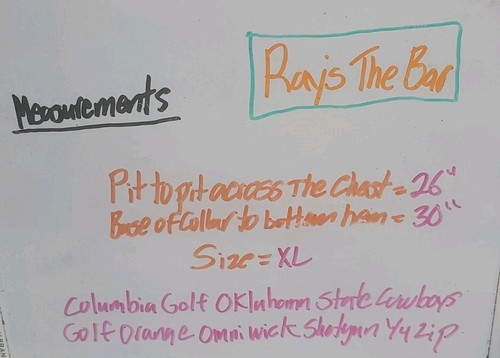 Rays The Bar
Measurements
Pit to pit across The Chest = 26"
Base of Collar to bottom hem = 30"
Size = XL
Columbia Golf Oklahoma State Cowboys
Golf Orange Omni wick Shotgun 1/4 zip